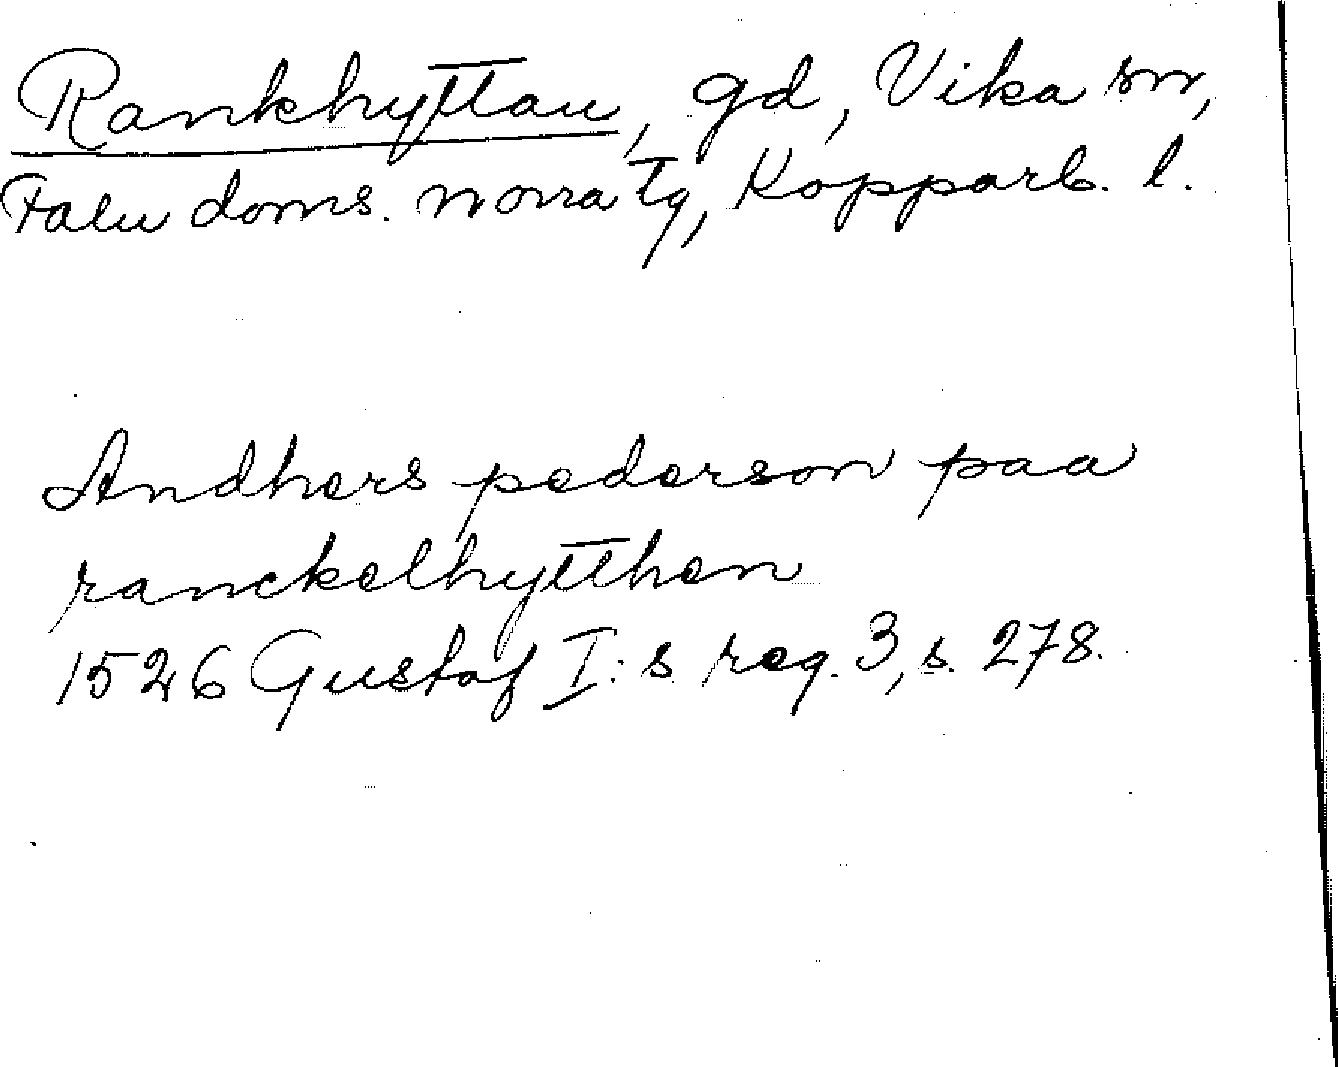 Rankhyttan, gd, Vika sn,
Falu doms. norra tg, Kopparb. l.
Andhers pederson paa
ranckelhytthen
1526 Gustaf I:s reg. 3, s. 278.